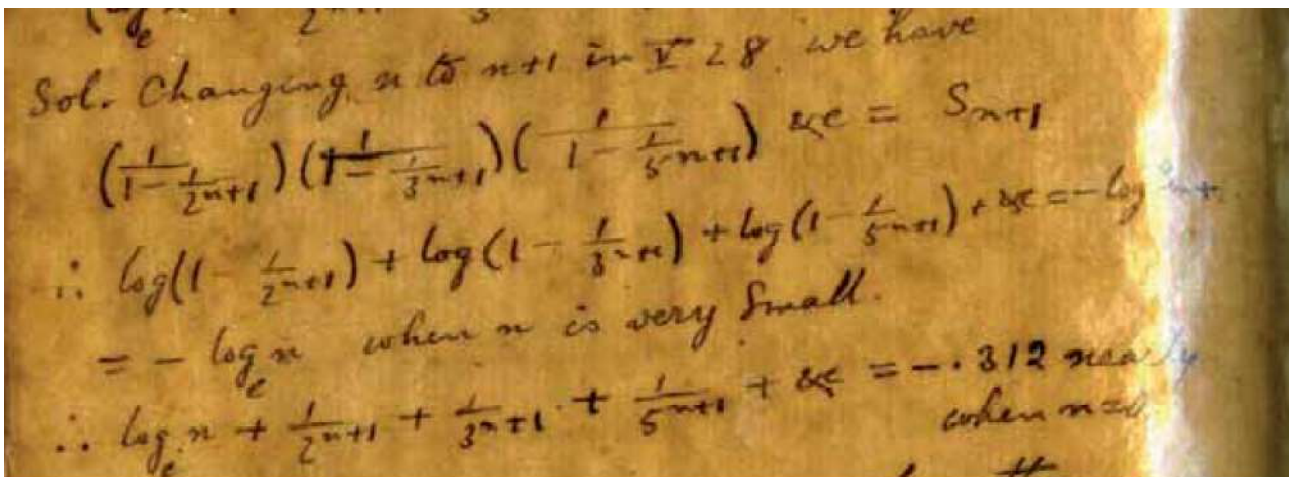 Sol. Changing n to n+1 in V 28. we have
(1/(1 - 1/2^{n+1})) (1/(1 - 1/3^{n+1})) (1/(1 - 1/5^{n+1})) &c = S_{n+1}
∴ log(1 - 1/2^{n+1}) + log(1 - 1/3^{n+1}) + log(1 - 1/5^{n+1}) + &c = - log S_{n+1}
= - log_e n when n is very small.
∴ log_e n + 1/2^{n+1} + 1/3^{n+1} + 1/5^{n+1} + &c = -.312 nearly
when n=0